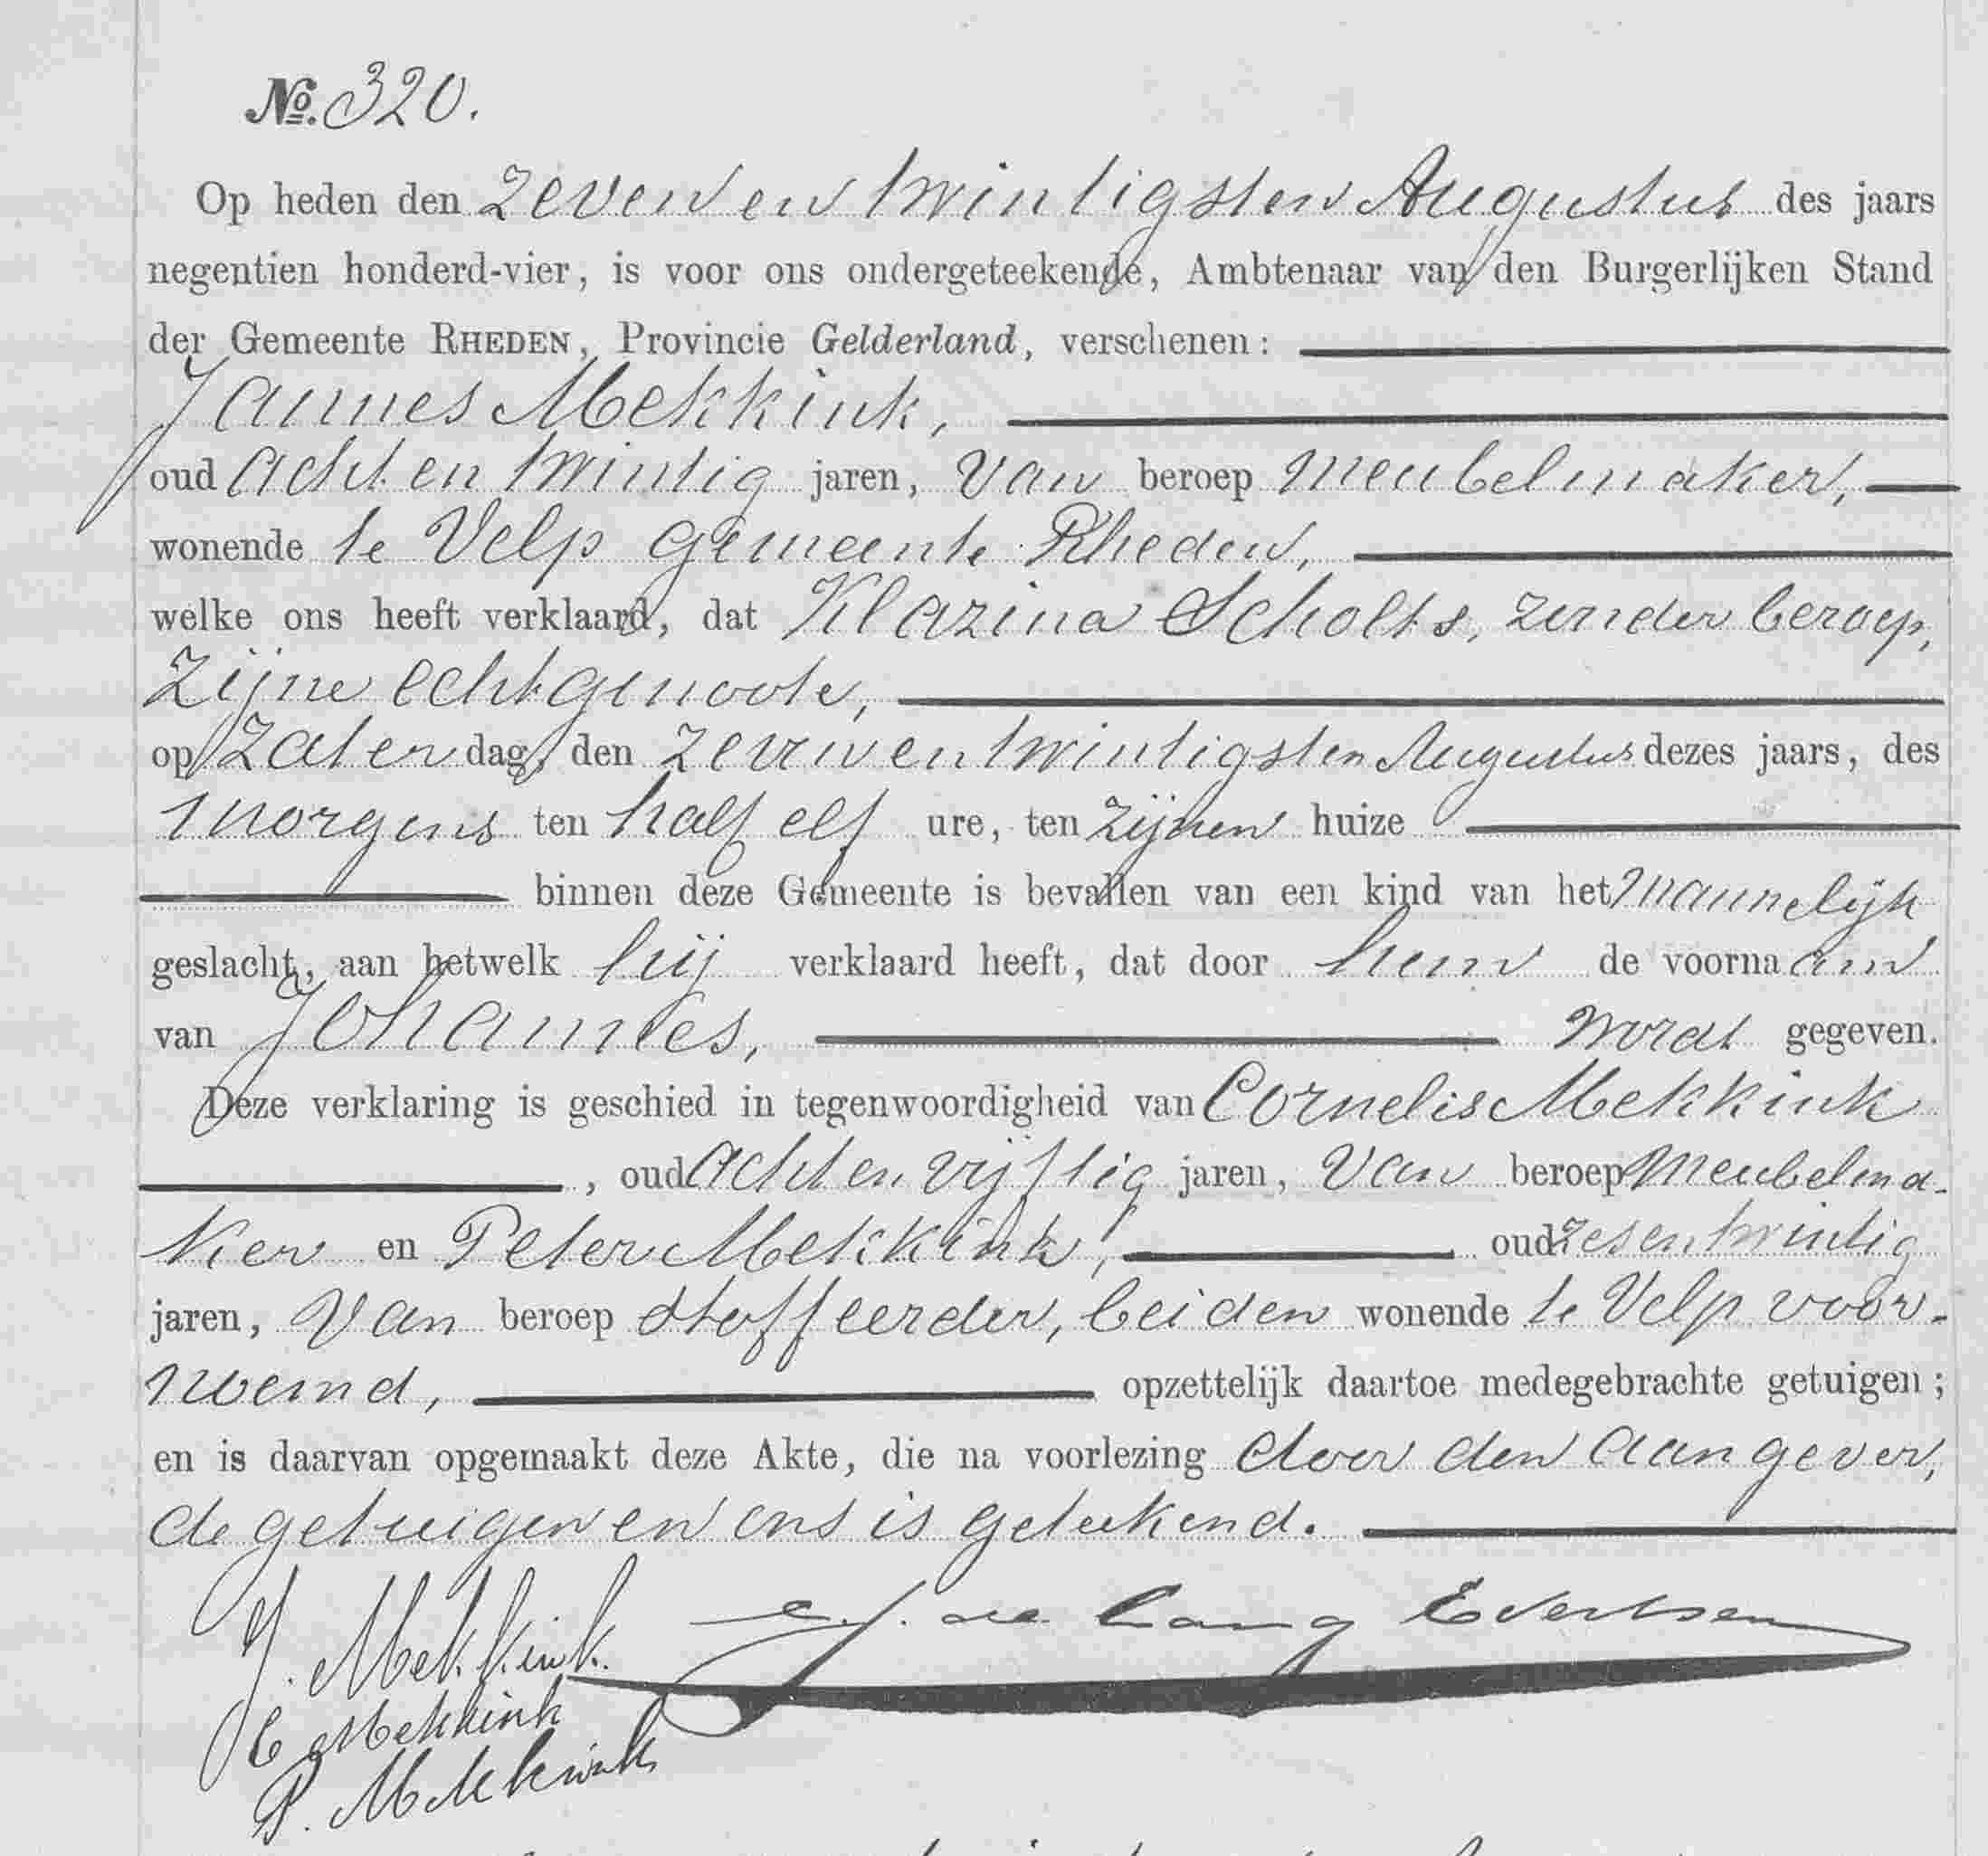 No. 320.
Op heden den zevenentwintigsten Augustus des jaars
negentien honderd-vier, is voor ons ondergeteekende, Ambtenaar van den Burgerlijken Stand
der Gemeente RHEDEN, Provincie Gelderland, verschenen:
Jannes Mekkink,
oud achtentwintig jaren, van beroep meubelmaker,
wonende te Velp gemeente Rheden,
welke ons heeft verklaard, dat Klazina Scholts, zonder beroep,
zijne echtgenoote,
op Zaterdag, den zevenentwintigsten Augustus dezes jaars, des
morgens ten half elf ure, ten zijnen huize
binnen deze Gemeente is bevallen van een kind van het mannelijk
geslacht, aan hetwelk hij verklaard heeft, dat door hem de voornaam
van Johannes, wordt gegeven.
Deze verklaring is geschied in tegenwoordigheid van Cornelis Mekkink
, oud achtenvijftig jaren, van beroep meubelma-
ker en Peter Mekkink, oud zesentwintig
jaren, van beroep stoffeerder, beiden wonende te Velp voor-
noemd, opzettelijk daartoe medegebrachte getuigen;
en is daarvan opgemaakt deze Akte, die na voorlezing door den aangever,
de getuigen en ons is geteekend.
J. Mekkink. de Lang Evertsen
C Mekkink
P. Mekkink